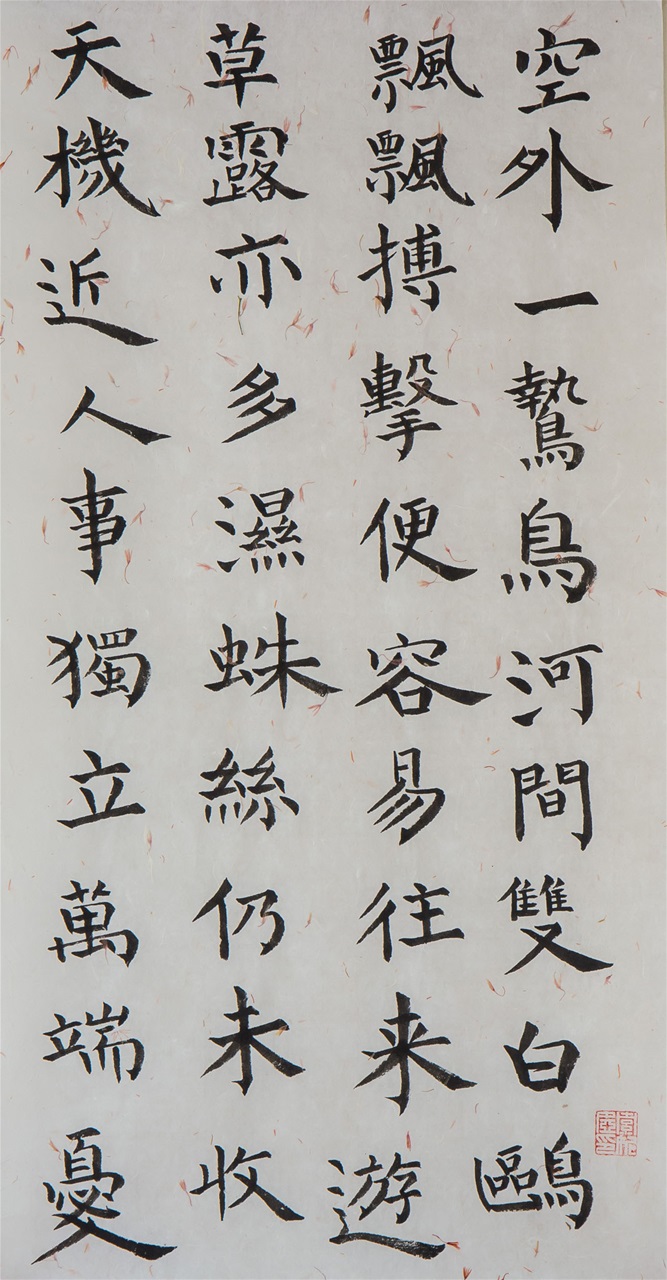 空外一鷙鳥河間雙白鷗
飄飄搏擊便容易往来遊
草露亦多濕蛛絲仍未收
天機近人事獨立萬端憂